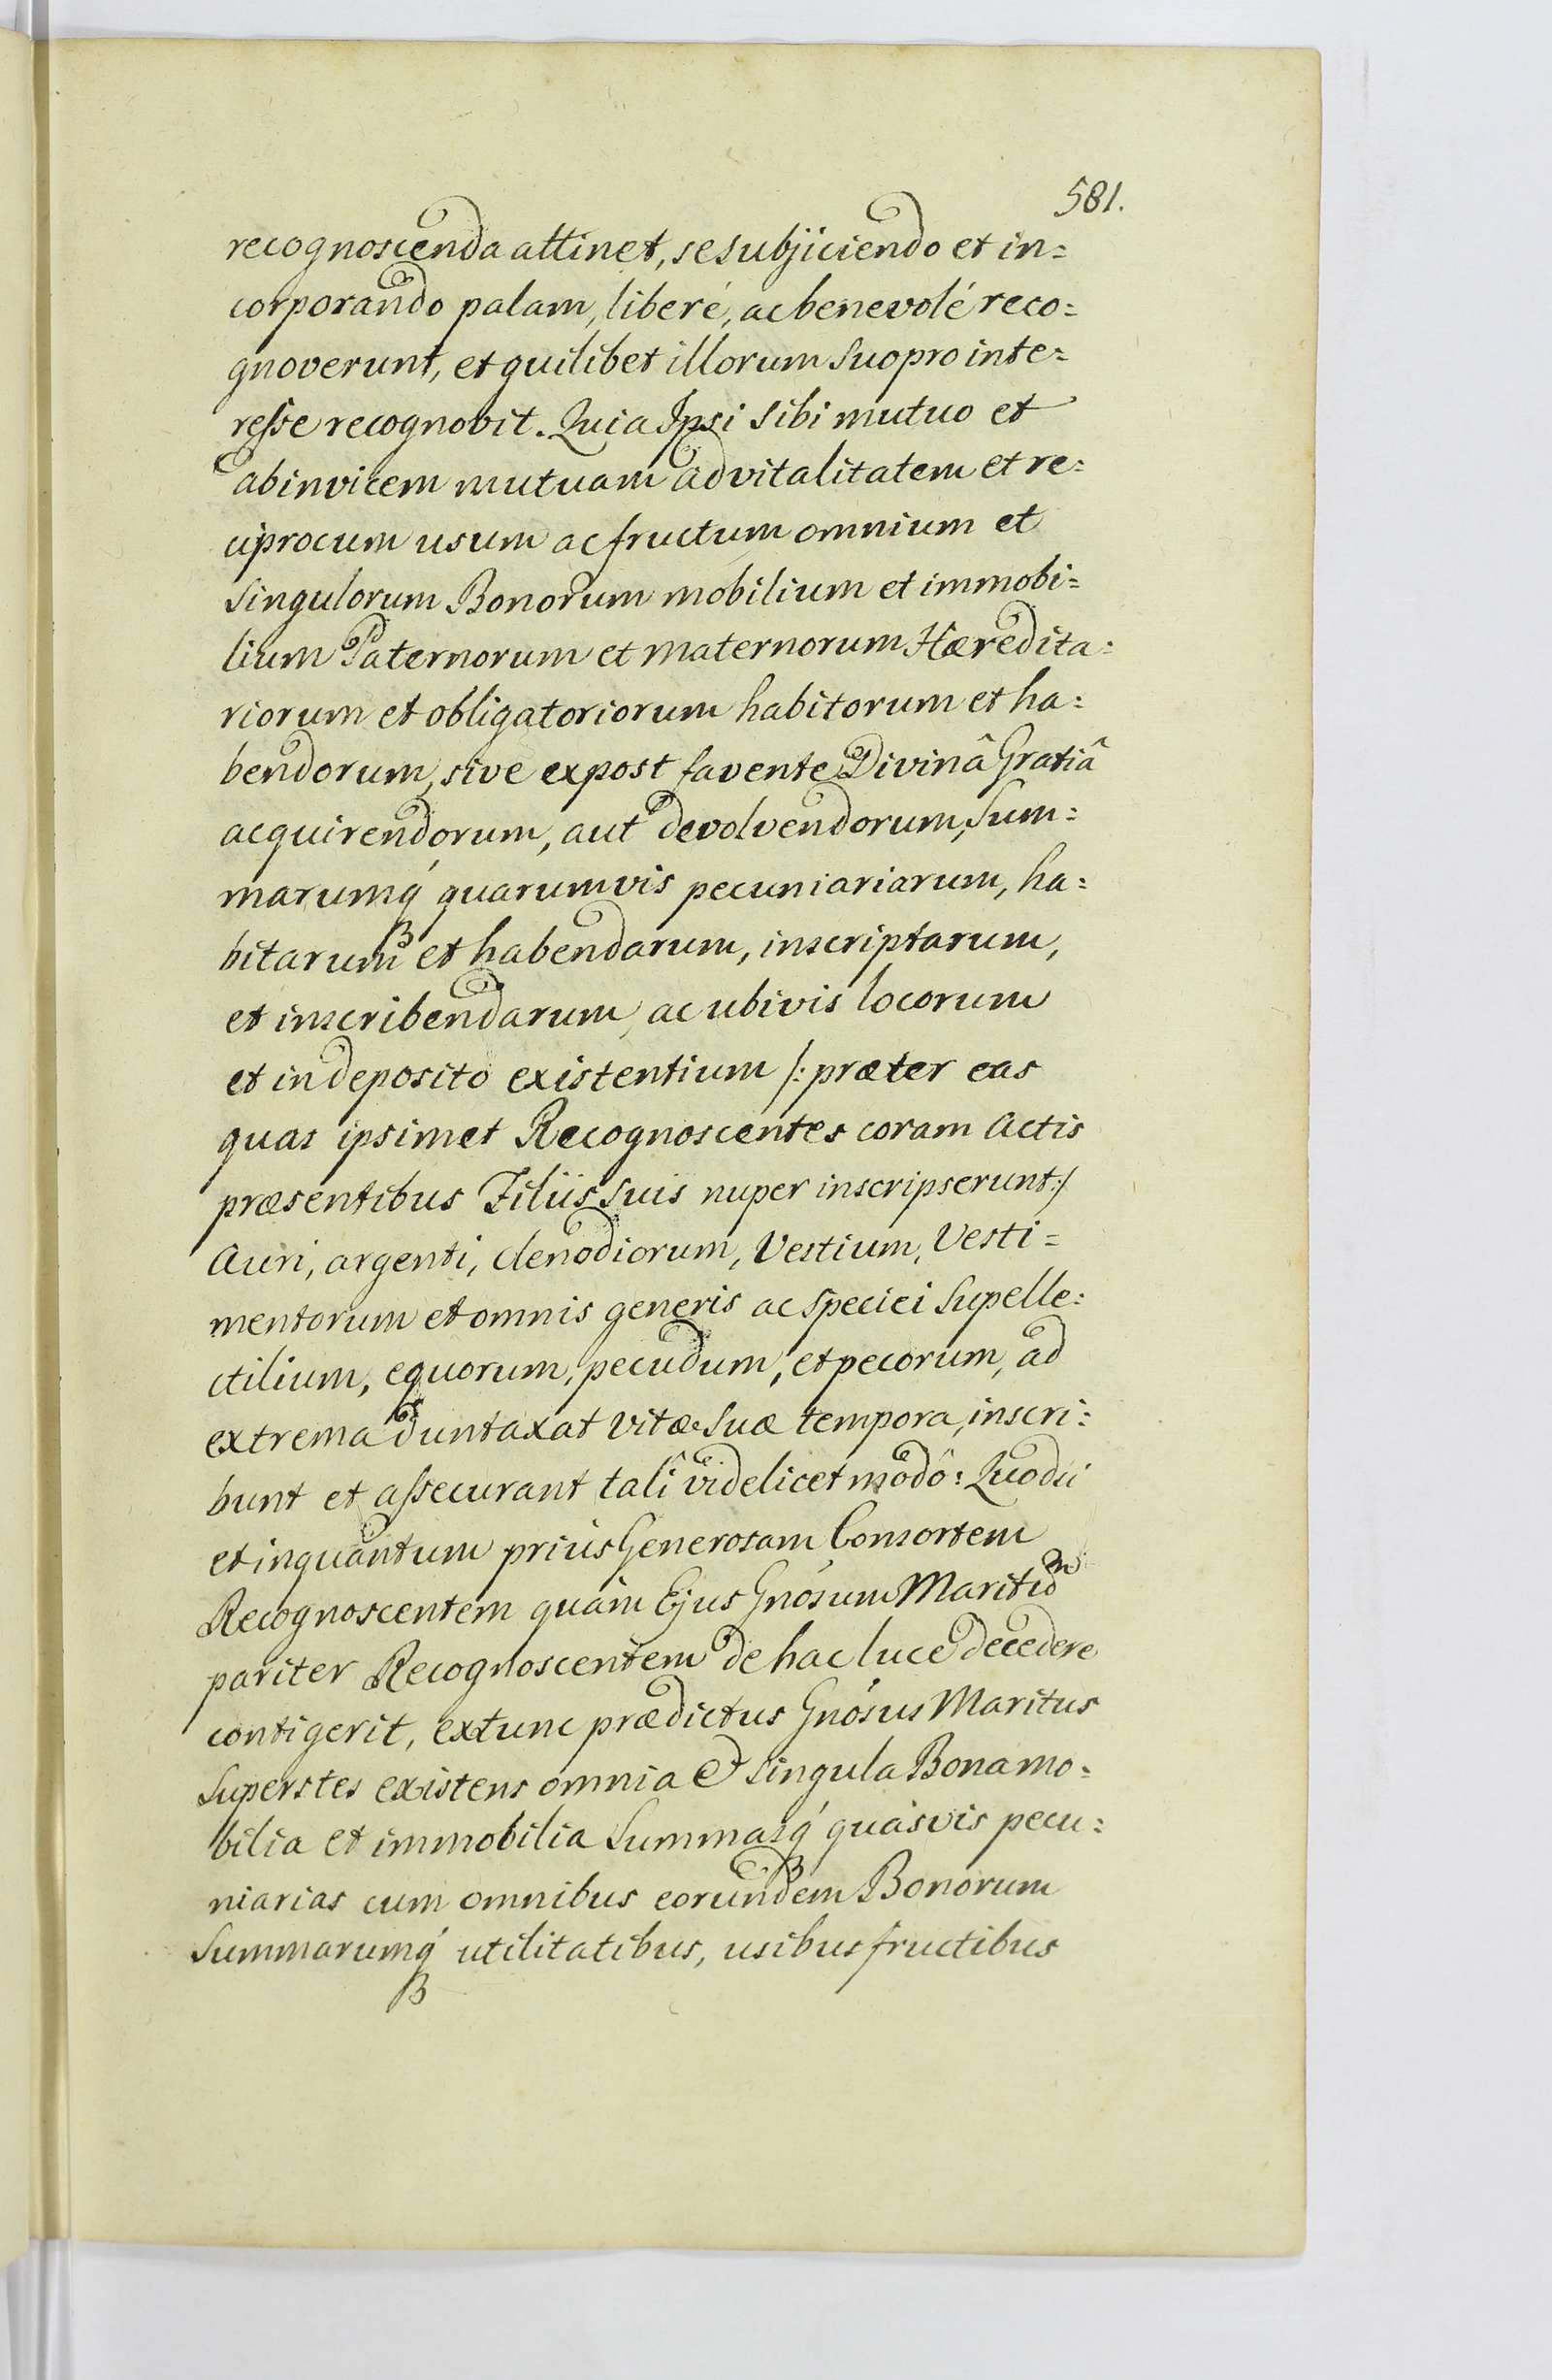 581.
recognoscenda attinet, se subjiciendo et in=
corporando palam, liberé, ac benevolé reco=
gnoverunt, et quilibet illorum suo pro inte=
resse recognovit. Quia Ipsi sibi mutuo et
ab invicem mutuam advitalitatem et re=
ciprocum usum ac fructum omnium et
singulorum Bonorum mobilium et immobi=
lium Paternorum et maternorum Hæredita=
riorum et obligatoriorum habitorum et ha=
bendorum, sive ex post favente Divinâ Gratiâ
acquirendorum, aut devolvendorum, Sum=
marumq́ꝫ quarumvis pecuniariarum, ha=
bitarum et habendarum, inscriptarum,
et inscribendarum, ac ubivis locorum
et in deposito existentium /: præter eas
quas ipsimet Recognoscentes coram Actis
præsentibus Filiis suis nuper inscripserunt :/
Auri, argenti, clenodiorum, Vestium, Vesti=
mentorum et omnis generis ac speciei Supelle=
ctilium, equorum, pecudum, et pecorum, ad
extrema duntaxat vitæ suæ tempora, inscri=
bunt et assecurant talî videlicet modô: Quod ii
et inquantum prius Generosam Consortem
Recognoscentem quàm Ejus Gnósum Maritum
pariter Recognoscentem de hac luce decedere
contigerit, extunc prædictus Gnósus Maritus
superstes existens omnia & singula Bona mo=
bilia et immobilia Summasq́ꝫ quasvis pecu=
niarias cum omnibus eorundem Bonorum
Summarumq́ꝫ utilitatibus, usibus fructibus